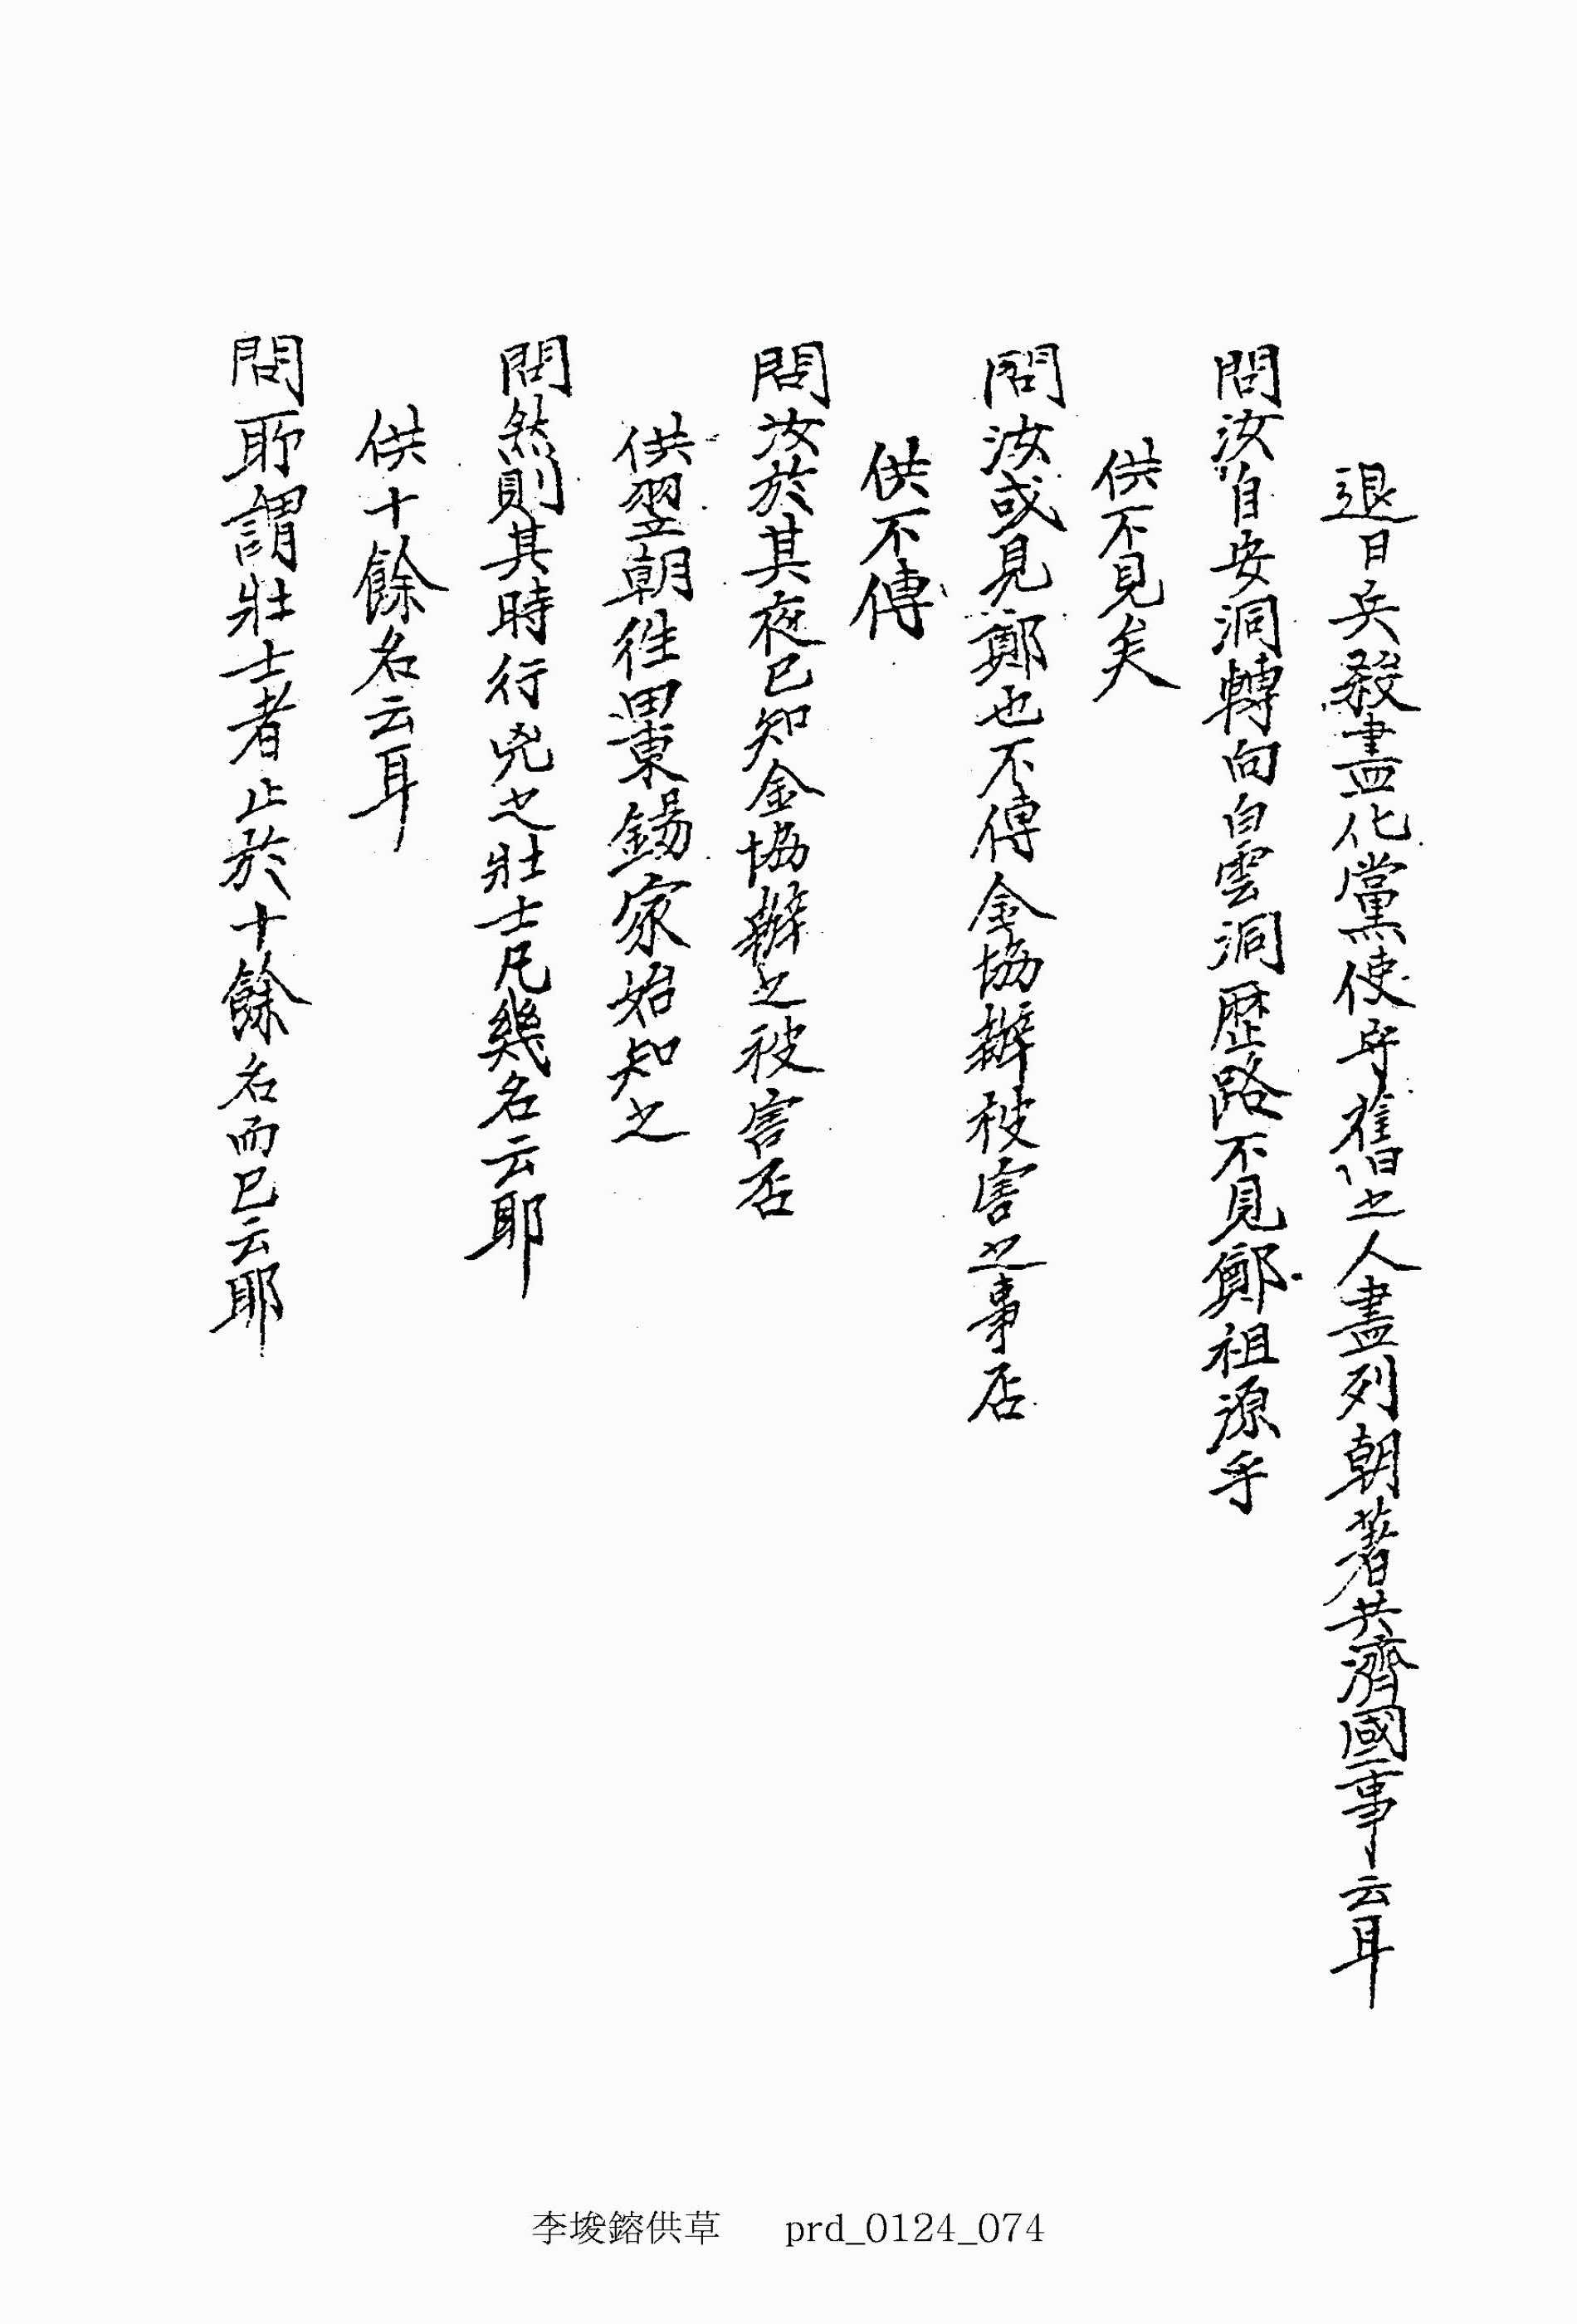 退日兵殺盡化黨使守舊之人盡列朝著共濟國事云耳
問汝自安洞轉向白雲洞歷路不見鄭祖源乎
供不見矣
問汝或見鄭也不傳金協辦被害之事否
供不傳
問汝於其夜已知金協辦之被害否
供翌朝往田東錫家始知之
問然則其時行兇之壯士凡幾名云耶
供十餘名云耳
問所謂壯士者止於十餘名而已云耶
李埈鎔供草 prd_0124_074